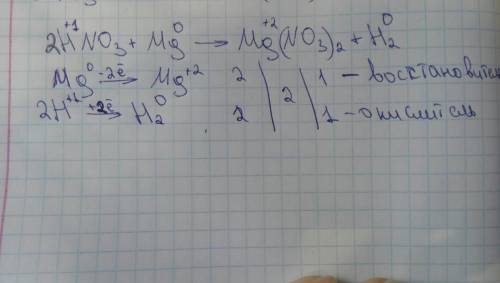 2H⁺¹NO₃ + Mg⁰ → Mg⁺²(NO₃)₂ + H₂⁰
Mg⁰ -2ē → Mg⁺² 2 | 2 | 1 – восстановител
2H⁺¹ +2ē → H₂⁰ 2 | | 1 – окислитель